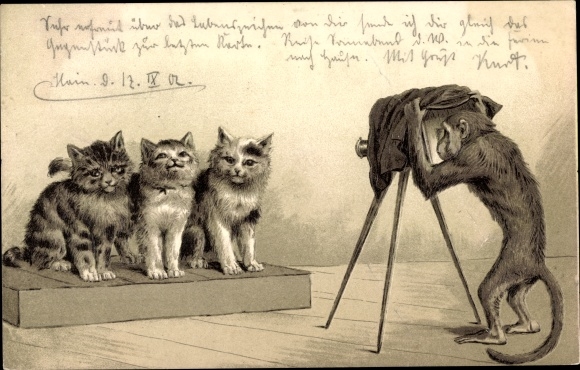 Sehr erfreut über das Lebenszeichen von dir sende ich dir gleich das
Gegenstück zur letzten Karte. Reise Sonnabend d. W. in die Ferien
nach Hause. Mit Gruß Kurt.
17. IX 02.